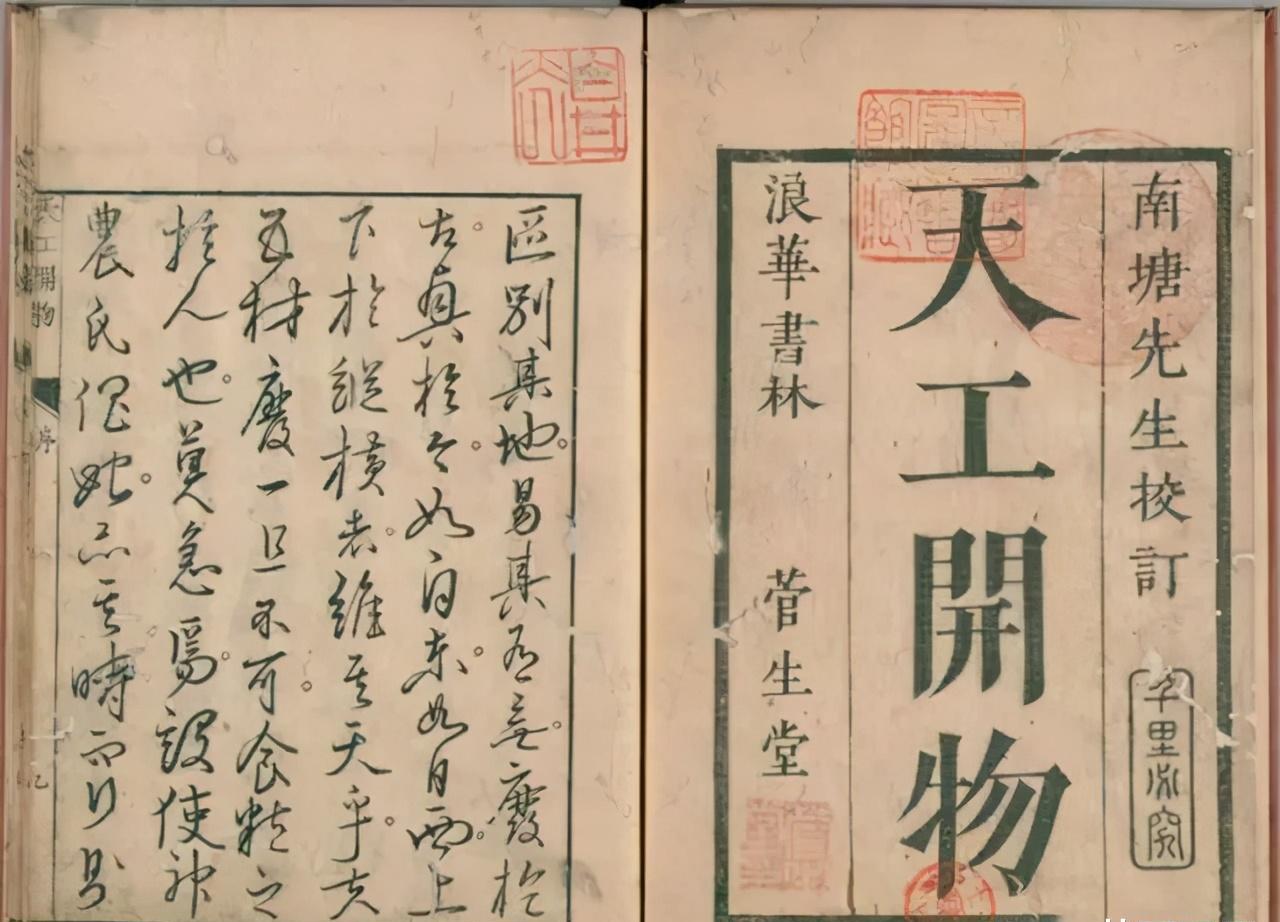 南塘先生校訂
千里必究
天工開物
浪華書林 菅生堂
區別其地。易其有無。廢於
古。興於今。如自東。如自西。上
下於縱橫者。維其天乎。夫
五材廢一且不可。食粒之
於人也。莫急焉。設使神
農氏 時而行則
天工開物 序